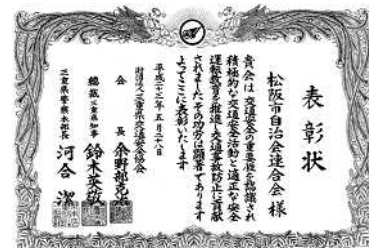 表彰状
松阪市自治会連合会 様
貴会は交通安全の重要性を認識され
積極的な交通安全活動と適正な安全
運転教育を推進し交通事故防止に貢献
されました その功労は顕著であります
よってここに表彰いたします
平成二十三年五月二十八日
財団法人三重県交通安全協会
会長
総裁 三重県知事 鈴木英敬
三重県警察本部長 河合 潔